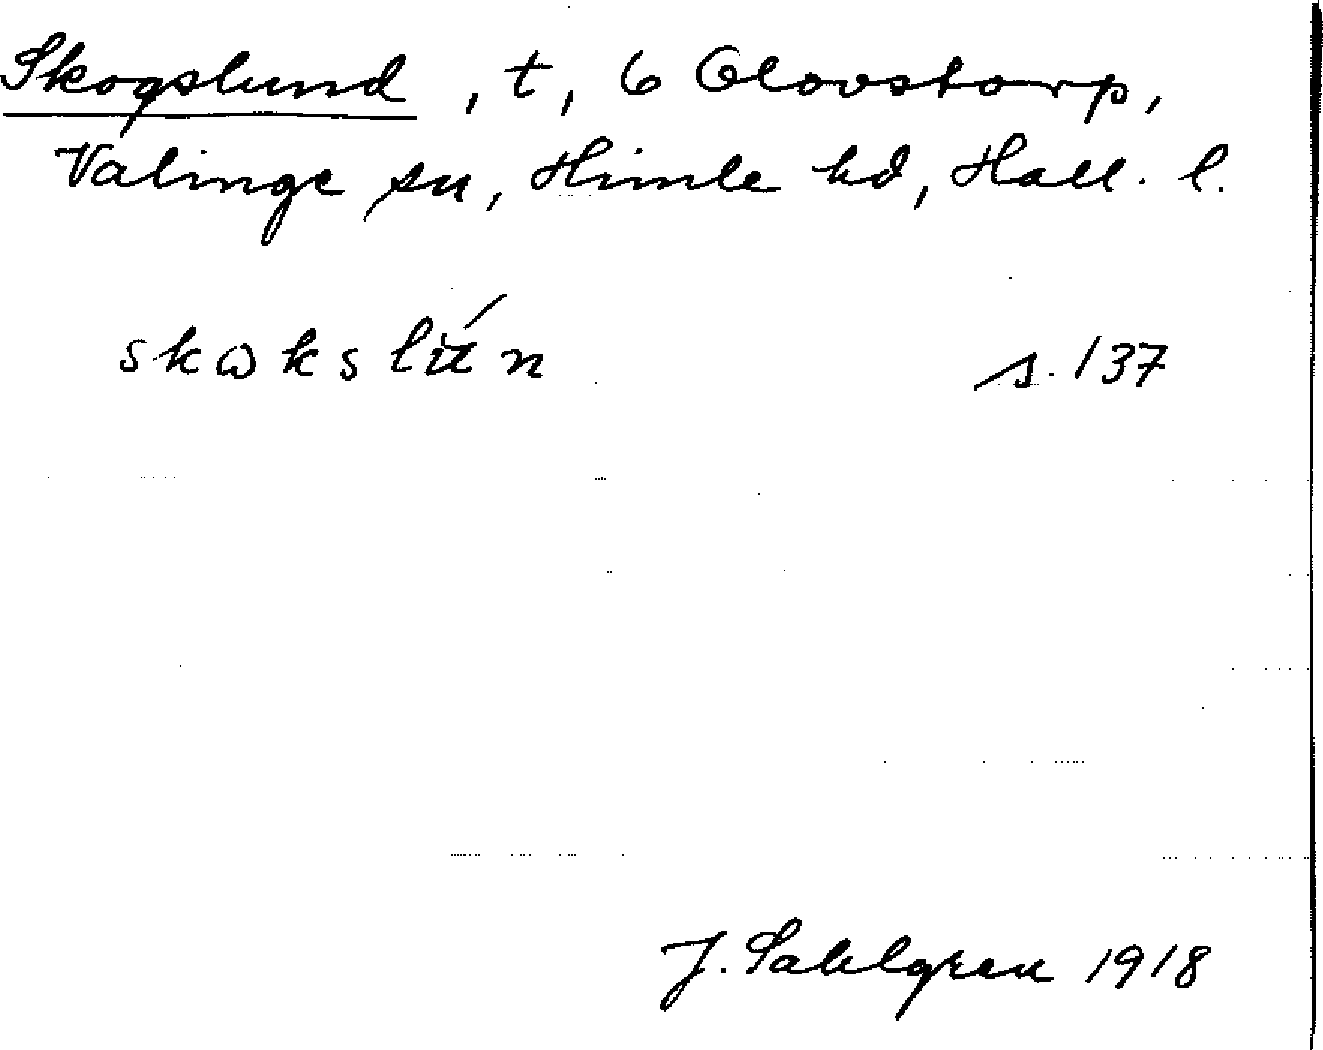 Skogslund, t, 6 Olovstorp,
Valinge sn, Himle hd, Hall. l.
skɷkslún s. 137
J. Sahlgren 1918